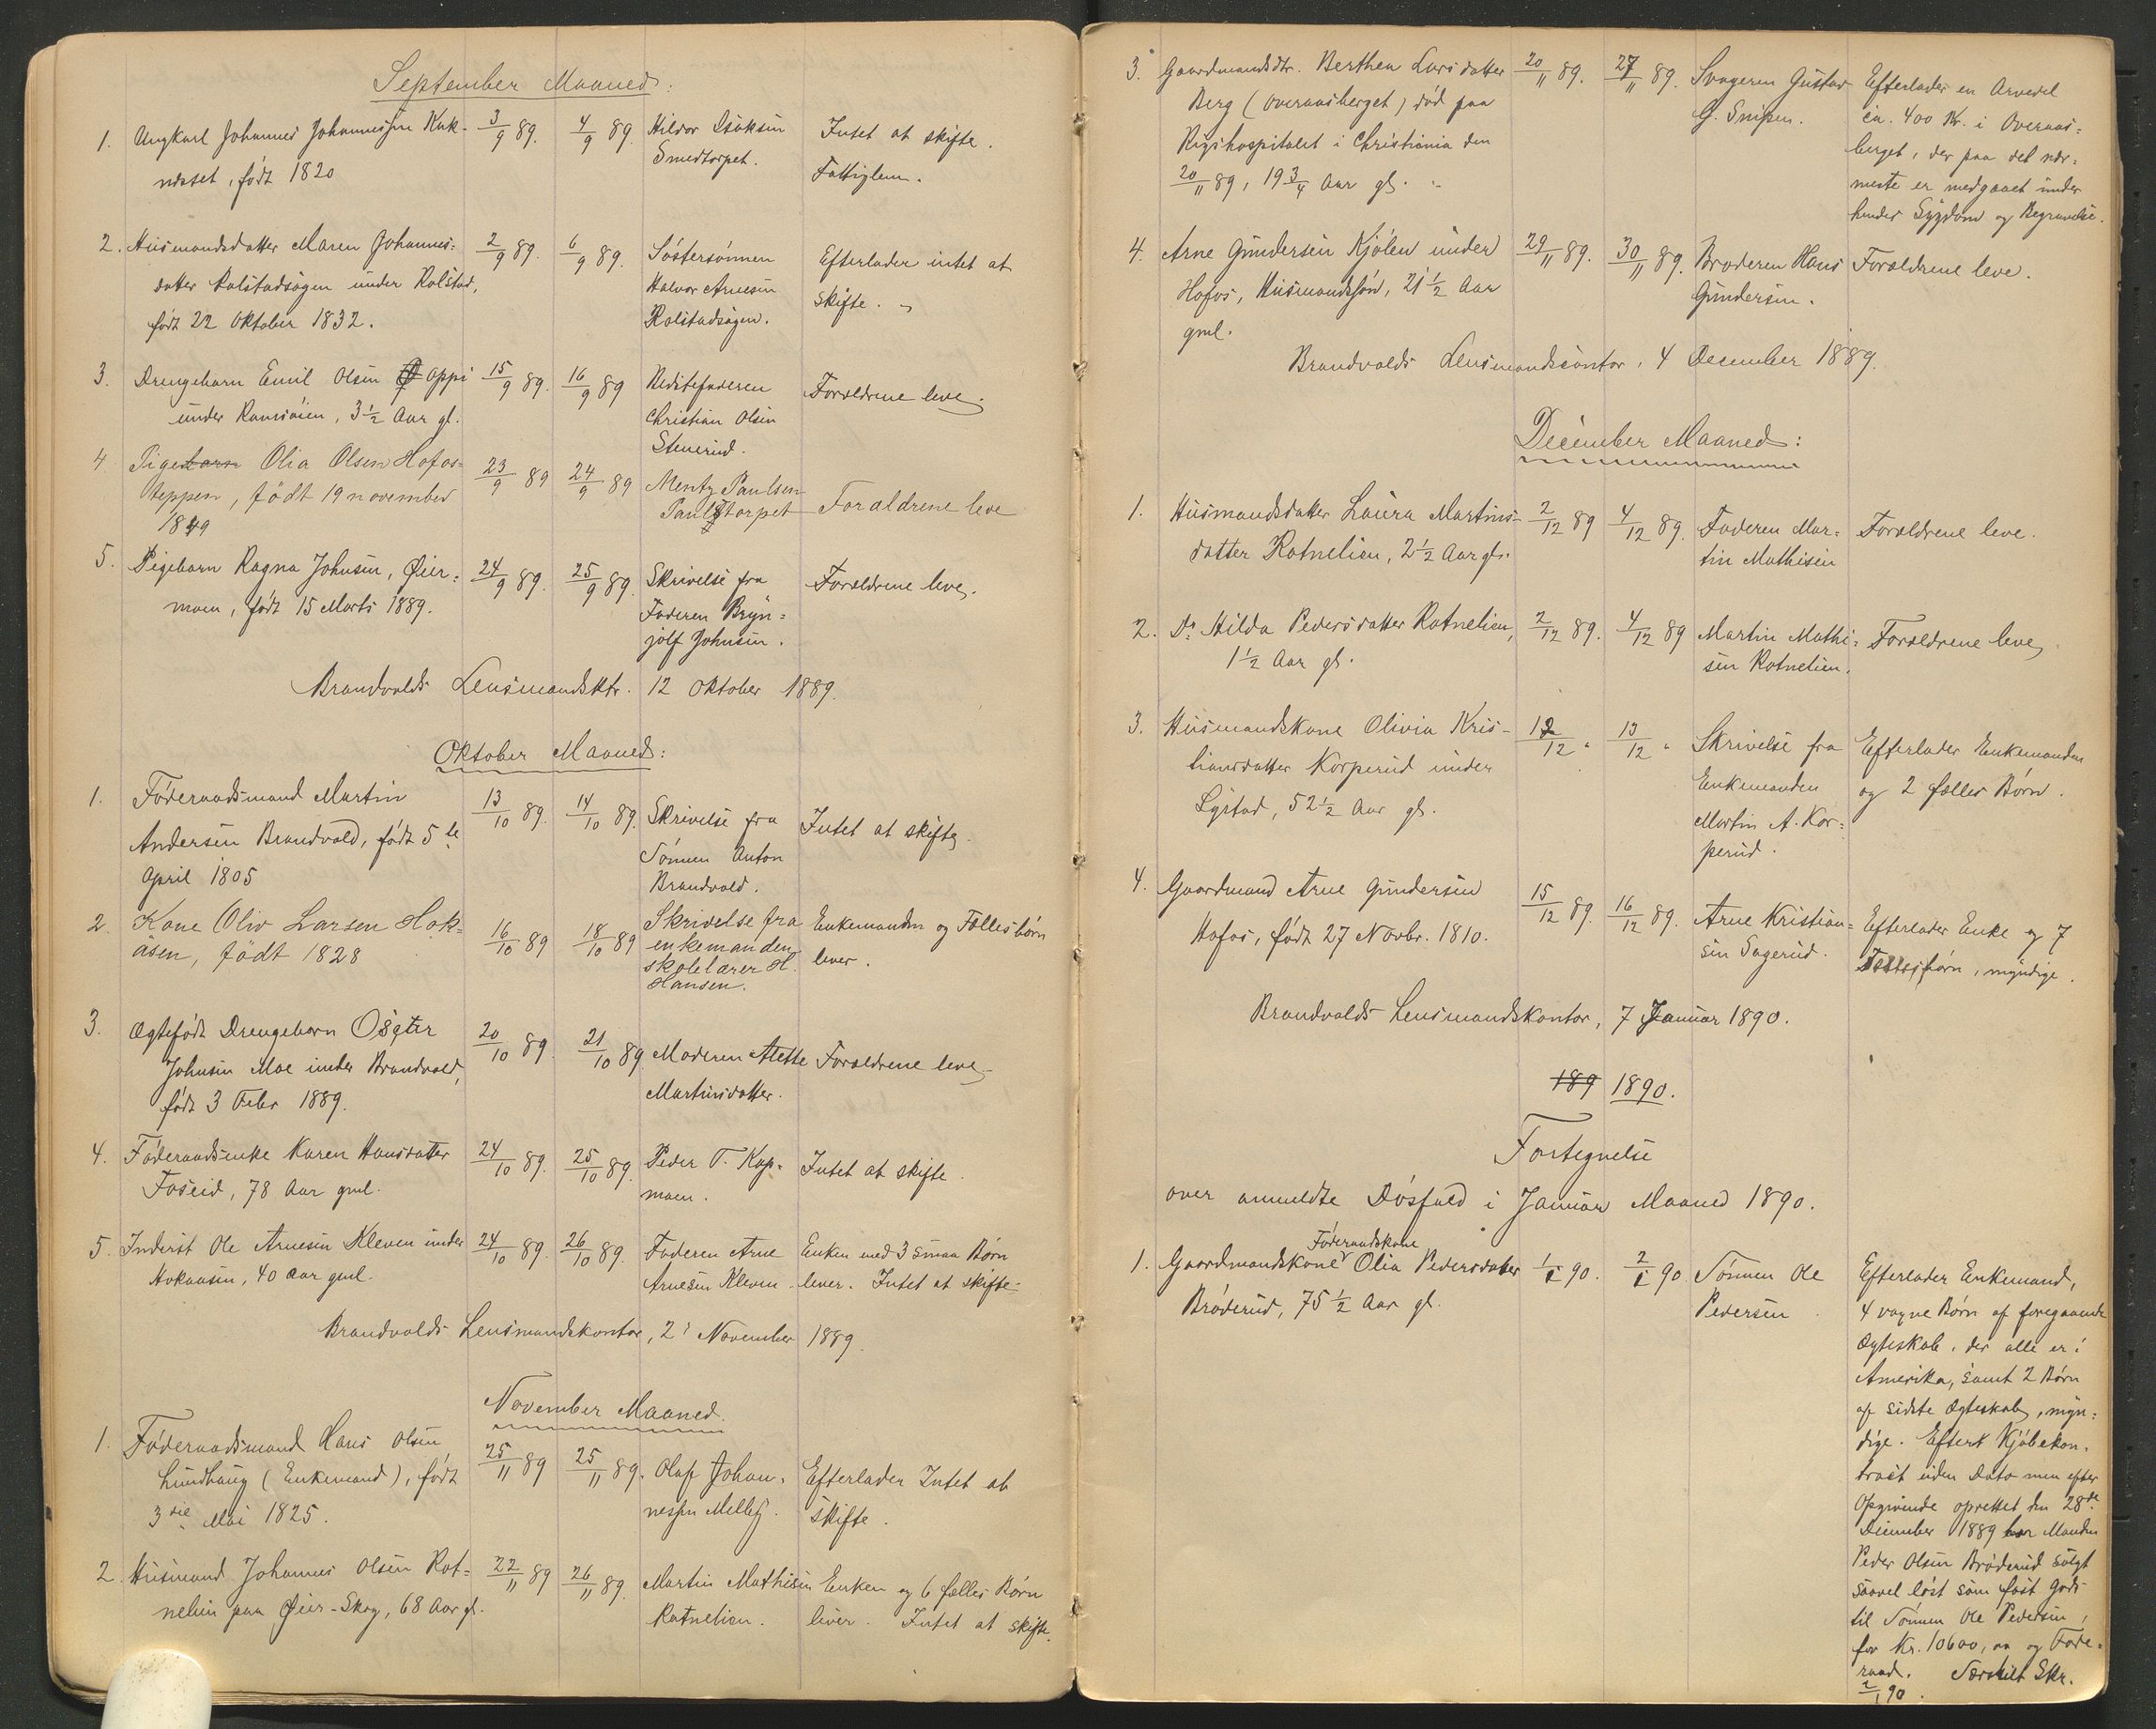 September Maaned:
1. Ungkarl Johannes Johannessen Kuk- 3/9 89. 4/9 89. Hildor Isaksen Intet at skifte.
næset, født 1820 Smedtorpet. Fattiglem.
2. Husmandsdatter Maren Johannes- 2/9 89. 6/9 89. Søstersønnen Efterlader intet at
datter Rolstadsagen under Rolstad, Halvor Arnesen skifte.
født 22 Oktober 1832. Rolstadsagen.
3. Drengebarn Emil Olsen Oppi 15/9 89. 16/9 89 Stedtefaderen Forældrene leve.
under Ramsøien, 3 1/2 Aar gl. Christian Olsen
Stenerud.
4 Pigebarn Olia Olsen Hofos- 23/9 89 24/9 89 Mentz Paulsen
teppen, født 19 november Paulstorpet Forældrene leve
1849
5. Pigebarn Ragna Johnsen, Øier- 24/9 89. 25/9 89. Skrivelse fra Forældrene leve.
moen, født 15 Marts 1889. Faderen Bryn-
jolf Johnsen.
Brandvolds Lensmandsktr. 12 Oktober 1889.
Oktober Maaned:
1. Føderaadsmand Martin 13/10 89. 14/10 89. Skrivelse fra Intet at skifte.
Andersen Brandvold, født 5te Sønnen Anton
April 1805 Brandvold.
2. Kone Oliv Larsen Hok- 16/10 89 18/10 89 Skrivelse fra Enkemanden og Fællesbørn
åsen, født 1828 enkemanden lever.
skolelærer H.
Hansen.
3. Ægtefødt Drengebarn Osgter 20/10 89. 21/10 89. Moderen Alette Forældrene leve.
Johnsen Moe under Brandvold, Martinsdatter.
født 3 Febr 1889.
4. Føderaadsenke Karen Hansdatter 24/10 89. 25/10 89. Peder T. Kop- Intet at skifte.
Foseid, 78 Aar gml. moen.
5. Inderst Ole Arnesen Kleven under 24/10 89. 26/10 89. Faderen Arne Enken med 3 smaa Børn
Hokaasen, 40 Aar gml. Arnesen Kleven. lever. Intet at skifte.
Brandvolds Lensmandskontor, 2' November 1889.
November Maaned.
1. Føderaadsmand Hans Olsen 25/11 89 25/11 89. Olaf Johan- Efterlader Intet at
Lundhaug (Enkemand), født nessen Melby. skifte.
3die Mai 1825.
2. Husmand Johannes Olsen Rot- 22/11 89 26/11 89. Martin Mathisen Enken og 6 fælles Børn
nelien paa Øier-Skog, 68 Aar gl. Rotnelien. lever. Intet at skifte.
3. Gaardmandsdtr. Berthea Larsdatter 20/11 89. 27/11 89. Svogeren Gustav Efterlader en Arvedel
Berg (Overaasberget) død paa G. Snipen. ca. 400 Kr. i Overaas-
Rigshospitalet i Christiania den berget, der paa det nær-
20/11 89, 19 3/4 Aar gl. meste er medgaaet under
hendes Sygdom og Begravelse.
4. Arne Gundersen Kjølen under 29/11 89. 30/11 89. Broderen Hans Forældrene leve.
Hofos, Husmandssøn, 21 1/2 Aar Gundersen.
gml.
Brandvolds Lensmandscontor, 4 December 1889.
December Maaned:
1. Husmandsdatter Laura Martins- 2/12 89 4/12 89. Faderen Mar- Forældrene leve.
datter Rotnelien, 2 1/2 Aar gl. tin Mathisen
2. Do Hilda Pedersdatter Rotnelien, 2/12 89. 4/12 89 Martin Mathi- Forældrene leve,
1 1/2 Aar gl. sen Rotnelien.
3. Husmandskone Olivia Kris- 12/12 " 13/12 " Skrivelse fra Efterlader Enkemanden
tiansdatter Korperud under Enkemanden og 2 fælles Børn.
Lystad, 52 1/2 Aar gl. Martin A. Kor-
perud.
4. Gaardmand Arne Gundersen 15/12 89. 16/12 89. Arne Kristian- Efterlader Enke og 7
Hofos, født 27 Novbr. 1810. sen Sagerud. Fællesbørn, myndige.
Brandvolds Lensmandskontor, 7 Januar 1890.
189 1890.
Fortegnelse
over anmeldte Dødsfald i Januar Maaned 1890.
Føderaadskone
1. Gaardmandskone Olia Pedersdatter 1/1 90. 2/1 90 Sønnen Ole Efterlader Enkemand,
Brøderud, 75 1/2 Aar gl. Pedersen 4 voxne Børn af foregaaende
Ægteskab, der alle er i
Amerika, samt 2 Børn
af sidste Ægteskab, myn-
dige. Eftert Kjøbekon-
trakt uden Dato men efter
Opgivende oprettet den 28de
December 1889 har Manden
Peder Olsen Brøderud solgt
saavel løst som fast Gods
til Sønnen Ole Pedersen,
for Kr. 10600,00 og Føde-
raad. Særskilt Skr.
2/1 90.